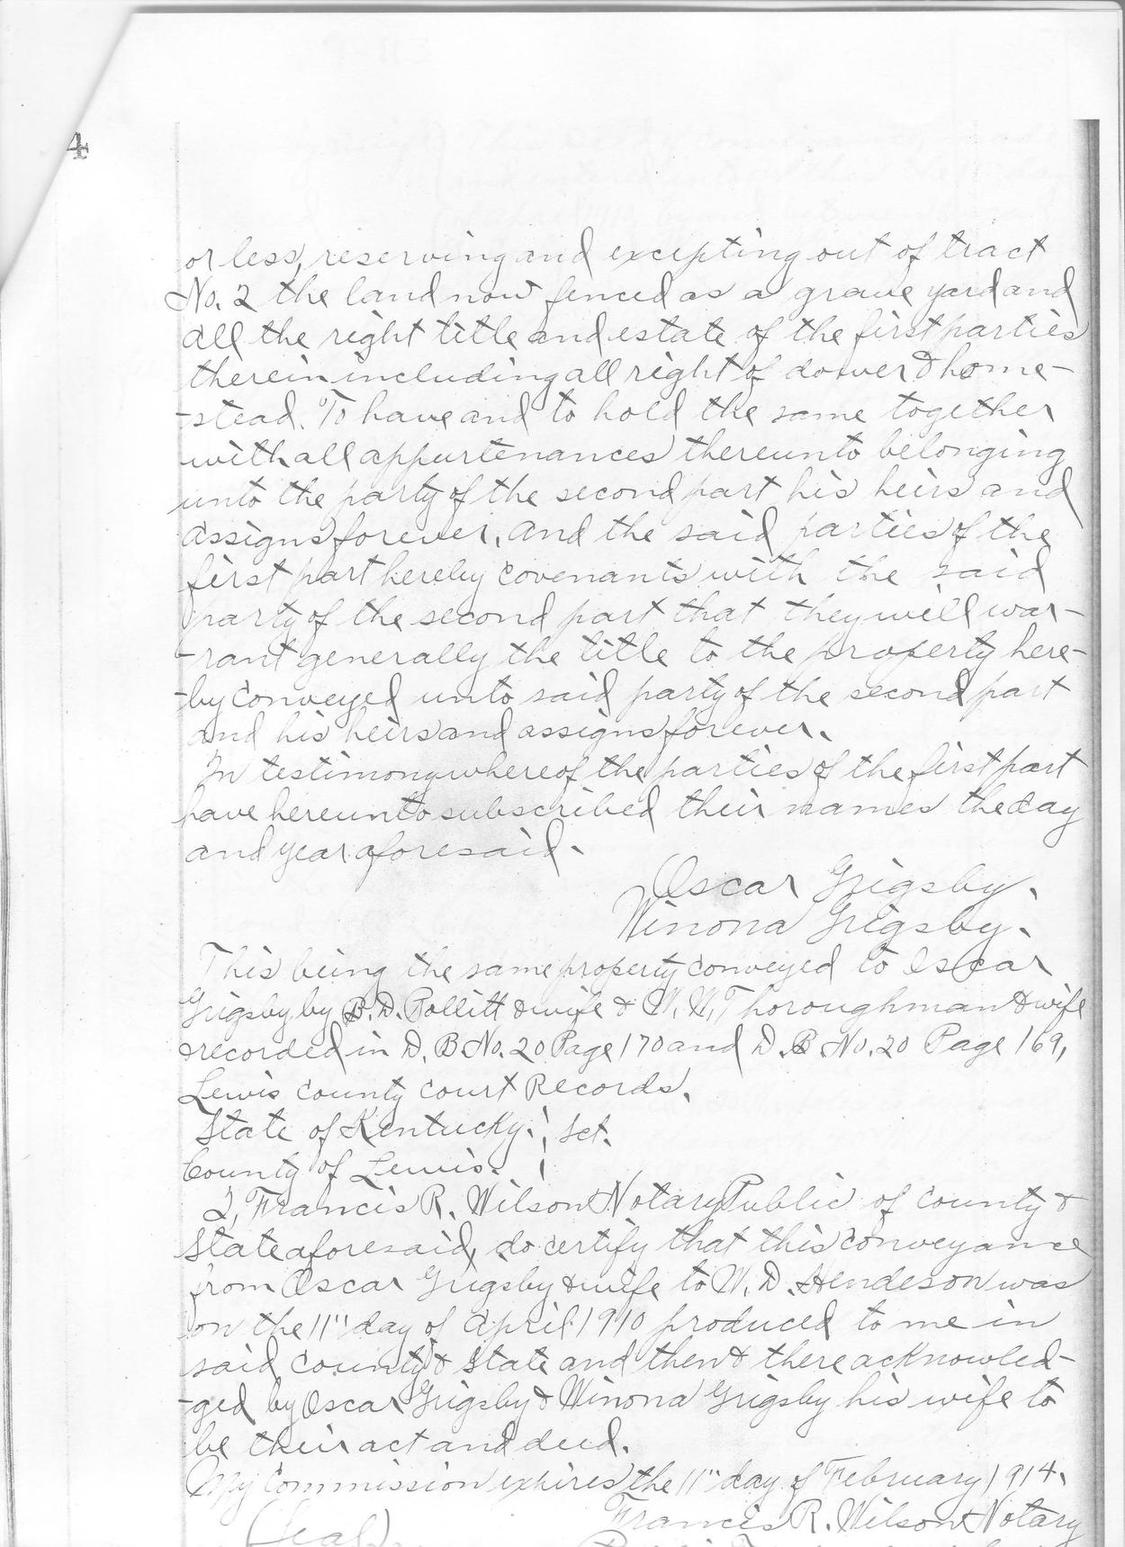 4
or less, reserving and excepting out of tract
No. 2 the land now fenced as a grave yard and
all the right title and estate of the first parties
therein including all right of dower & home-
-stead. To have and to hold the same together
with all appurtenances thereunto belonging
unto the party of the second part his heirs and
assigns forever, and the said parties of the
first part hereby covenants with the said
party of the second part that they will war-
-rant generally the title to the property here-
-by conveyed unto said party of the second part
and his heirs and assigns forever.
In testimony whereof the parties of the first part
have hereunto subscribed their names the day
and year aforesaid.
Oscar Grigsby.
Winona Grigsby.
This being the same property conveyed to Oscar
Grigsby by B. D. Pollitt & wife & W. W. Thoroughman & wife
& recorded in D. B No. 20 Page 170 and D. B No. 20 Page 169,
Lewis county court Records.
State of Kentucky. Sct.
County of Lewis.
I, Francis R. Wilson Notary Public of county &
State aforesaid, do certify that this conveyance
from Oscar Grigsby & wife to W. D. Hendeson was
on the 11" day of April 1910 produced to me in
said county & State and then & there acknowled-
-ged by Oscar Grigsby & Winona Grigsby his wife to
be their act and deed.
My Commission expires the 11" day of February 1914.
(Seal) Francis R. Wilson Notary